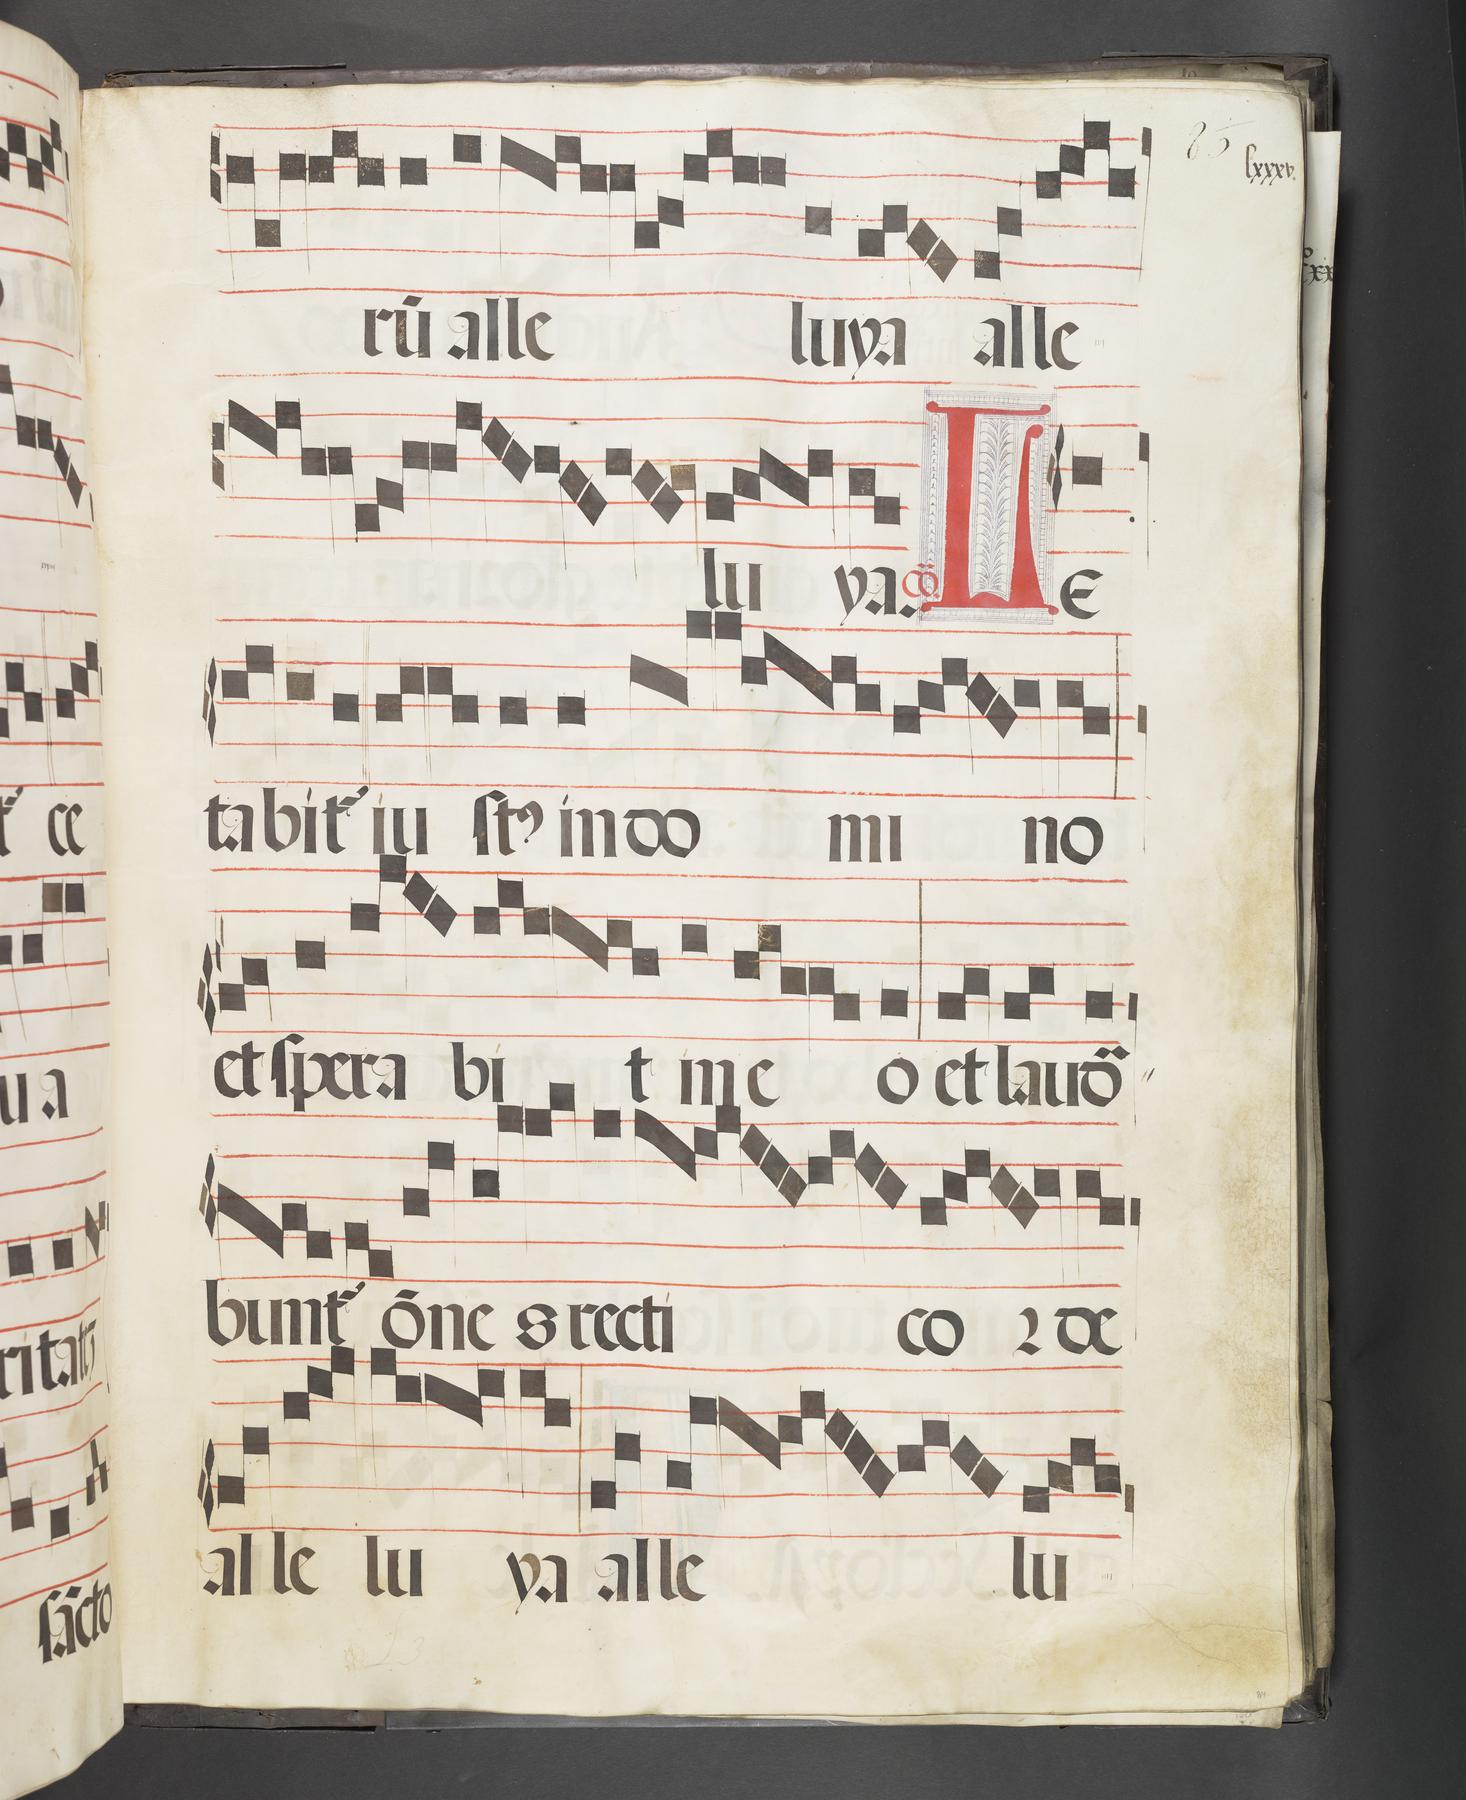 85 lxxxv.
rũ alle luya alle
lu ya. co. L E
tabit᷑ iu stꝰ in do mi no
et spera bi t in e o et laudã
bunt᷑ õne s recti co ꝛ de
al le lu ya alle lu
t᷑ ce
u a
ritatē
sãcto